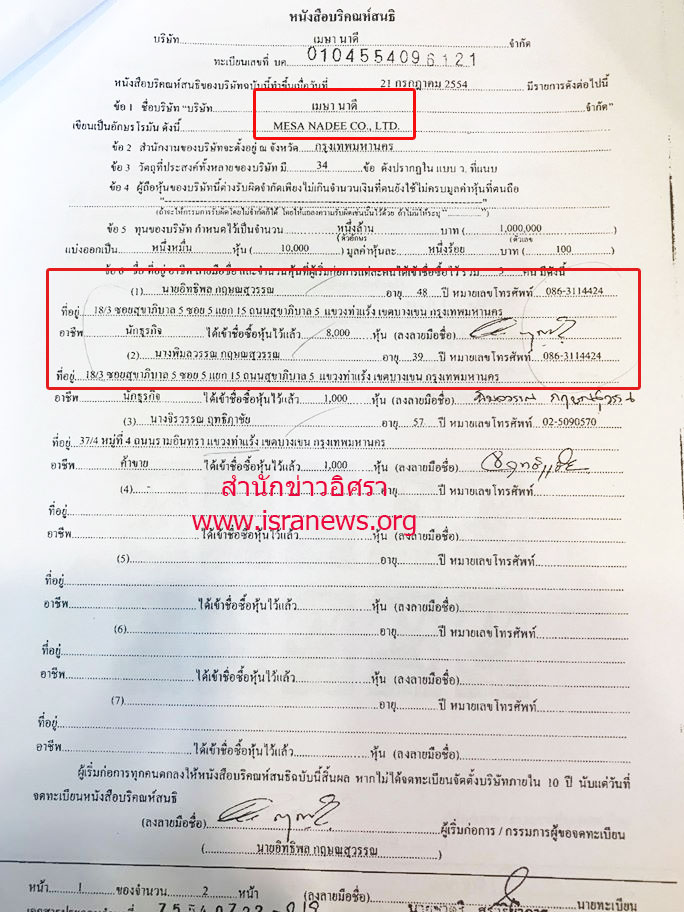 หนังสือบริคณห์สนธิ
บริษัท เมษา นาดี จำกัด
ทะเบียนเลขที่ บค. 0104554096121
หนังสือบริคณห์สนธิของบริษัทฉบับนี้ทำขึ้นเมื่อวันที่ 21 กรกฎาคม 2554 มีรายการดังต่อไปนี้
ข้อ 1 ชื่อบริษัท "บริษัท เมษา นาดี จำกัด"
เขียนเป็นอักษรโรมัน ดังนี้ MESA NADEE CO., LTD.
ข้อ 2 สำนักงานของบริษัทจะตั้งอยู่ ณ จังหวัด กรุงเทพมหานคร
ข้อ 3 วัตถุที่ประสงค์ทั้งหลายของบริษัท มี 34 ข้อ ดังปรากฏใน แบบ ว. ที่แนบ
ข้อ 4 ผู้ถือหุ้นของบริษัทนี้ต่างรับผิดจำกัดเพียงไม่เกินจำนวนเงินที่ตนยังใช้ไม่ครบมูลค่าหุ้นที่ตนถือ
"--------------------"
(ถ้าจะให้กรรมการรับผิดโดยไม่จำกัดก็ได้ โดยให้แถลงความรับผิดเช่นนั้นไว้ด้วย ถ้าไม่ให้ระบุ "...............")
ข้อ 5 ทุนของบริษัท กำหนดไว้เป็นจำนวน หนึ่งล้าน บาท ( 1,000,000 )
(ตัวอักษร) (ตัวเลข)
แบ่งออกเป็น หนึ่งหมื่น หุ้น ( 10,000 ) มูลค่าหุ้นละ หนึ่งร้อย บาท ( 100 )
ข้อ 6 ชื่อ ที่อยู่ อาชีพ ลายมือชื่อ และจำนวนหุ้นที่ผู้เริ่มก่อการแต่ละคนได้เข้าชื่อซื้อไว้ รวม 3 คน มีดังนี้
(1) นายอิทธิพล กฤษณสุวรรณ อายุ 48 ปี หมายเลขโทรศัพท์ 086-3114424
ที่อยู่ 18/3 ซอยสุขาภิบาล 5 ซอย 5 แยก 15 ถนนสุขาภิบาล 5 แขวงท่าแร้ง เขตบางเขน กรุงเทพมหานคร
อาชีพ นักธุรกิจ ได้เข้าชื่อซื้อหุ้นไว้แล้ว 8,000 หุ้น (ลงลายมือชื่อ)
(2) นางพิมลวรรณ กฤษณสุวรรณ อายุ 39 ปี หมายเลขโทรศัพท์ 086-3114424
ที่อยู่ 18/3 ซอยสุขาภิบาล 5 ซอย 5 แยก 15 ถนนสุขาภิบาล 5 แขวงท่าแร้ง เขตบางเขน กรุงเทพมหานคร
อาชีพ นักธุรกิจ ได้เข้าชื่อซื้อหุ้นไว้แล้ว 1,000 หุ้น (ลงลายมือชื่อ) พิมลวรรณ กฤษณสุวรรณ
(3) นางจิรวรรณ ฤทธิภาชัย อายุ 57 ปี หมายเลขโทรศัพท์ 02-5090570
ที่อยู่ 37/4 หมู่ที่ 4 ถนนรามอินทรา แขวงท่าแร้ง เขตบางเขน กรุงเทพมหานคร
อาชีพ ค้าขาย ได้เข้าชื่อซื้อหุ้นไว้แล้ว 1,000 หุ้น (ลงลายมือชื่อ)
(4) - อายุ ปี หมายเลขโทรศัพท์
สำนักข่าวอิศรา
ที่อยู่
www.isranews.org
อาชีพ ได้เข้าชื่อซื้อหุ้นไว้แล้ว หุ้น (ลงลายมือชื่อ)
(5) อายุ ปี หมายเลขโทรศัพท์
ที่อยู่
อาชีพ ได้เข้าชื่อซื้อหุ้นไว้แล้ว หุ้น (ลงลายมือชื่อ)
(6) อายุ ปี หมายเลขโทรศัพท์
ที่อยู่
อาชีพ ได้เข้าชื่อซื้อหุ้นไว้แล้ว หุ้น (ลงลายมือชื่อ)
(7) อายุ ปี หมายเลขโทรศัพท์
ที่อยู่
อาชีพ ได้เข้าชื่อซื้อหุ้นไว้แล้ว หุ้น (ลงลายมือชื่อ)
ผู้เริ่มก่อการทุกคนตกลงให้หนังสือบริคณห์สนธิฉบับนี้สิ้นผล หากไม่ได้จดทะเบียนจัดตั้งบริษัทภายใน 10 ปี นับแต่วันที่
จดทะเบียนหนังสือบริคณห์สนธิ
(ลงลายมือชื่อ) ผู้เริ่มก่อการ / กรรมการผู้ขอจดทะเบียน
( นายอิทธิพล กฤษณสุวรรณ )
หน้า 1 ของจำนวน 2 หน้า (ลงลายมือชื่อ) นายทะเบียน